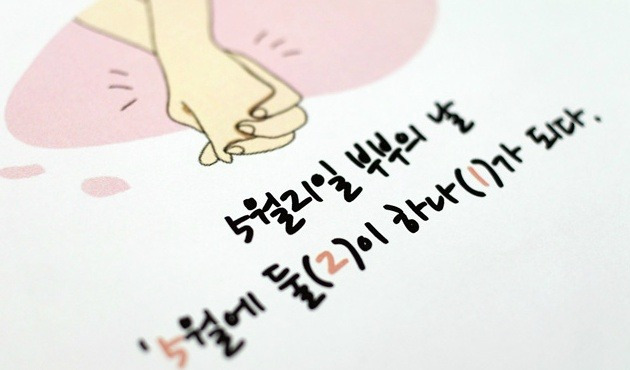 5월21일 부부의 날
'5월에 둘(2)이 하나(1)가 되다.